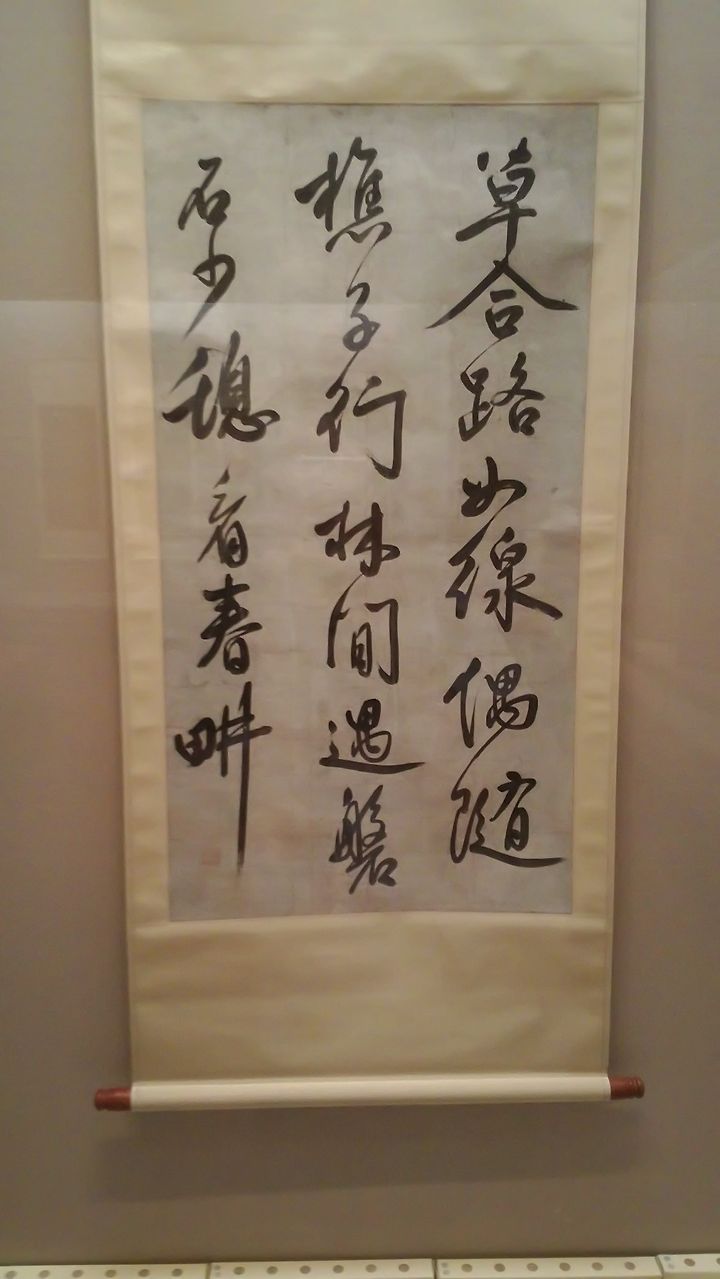 草合路如線偶随
樵子行林間遇磐
石少憩看春畊